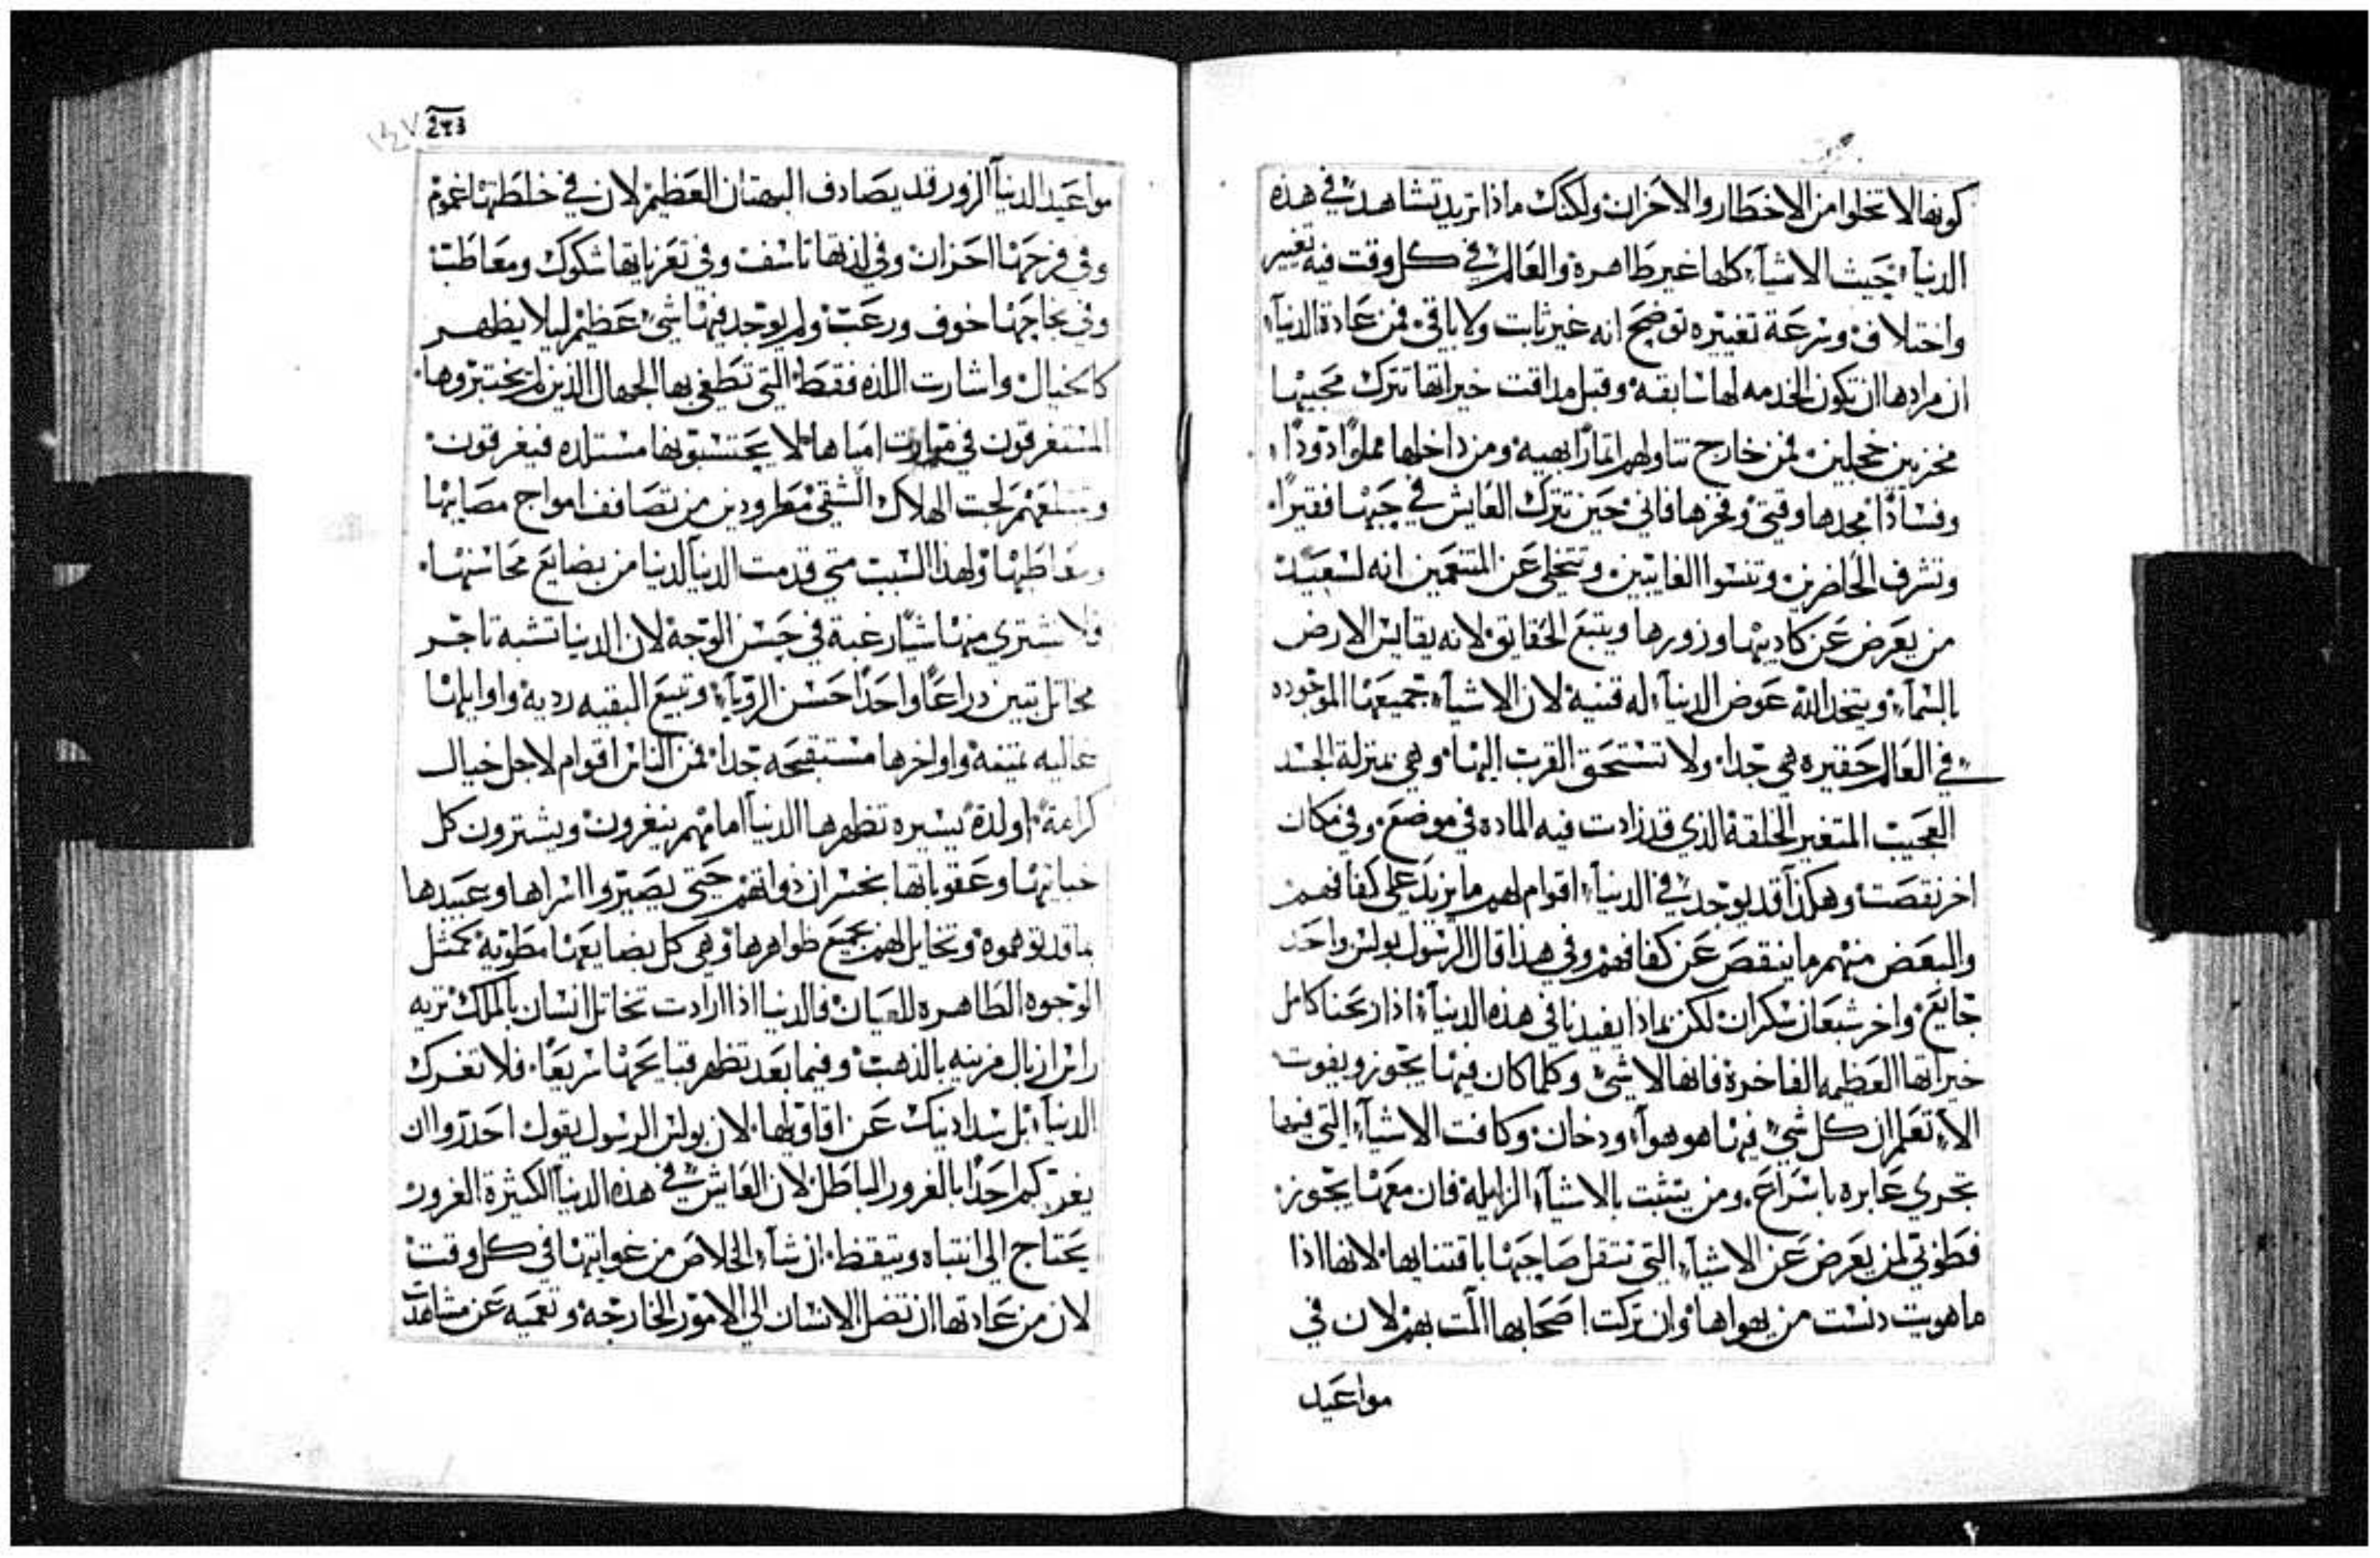 كونها لا تخلوا من الاخطار والاحزان ولكنك ماذا تريد تشاهد في هذه
الدنيآء حيث الاشيآء كلها غير طاهرة والعالم في كل وقت فيه تغيير
واختلاف وسرعة تغييره توضح انه غير ثابت ولا باقي فمن عادة الدنيآء
ان مرادها ان تكون الخدمه لها سابقه وقبل مداقت خيراتها تترك محبيها
محزنين خجلين فمن خارج تناولهم اتمارًا بهيه ومن داخلها مملوًا دودًا
وفسادًا مجدها وقتي وفخرها فاني حين تترك العايش في حبها فقيرًا
وتشرف الحاضرين وتنسوا الغايبين وتتخلى عن المتنعمين انه لسعيد
من يعرض عن كاديبها وزورها ويتبع الحقايق لانه يقايس الارض
بالسمآء ويتخد الله عوض الدنيآء له قنية لان الاشيآء جميعها الموجوده
في العالم حقيره هي جدا ولا تستحق القرب اليها وهي بمنزلة الجسد
العجيب المتغير الخلقة الذي قد زادت فيه الماده في موضع وفي مكان
اخر نقصت وهكذا قد يوجد في الدنيآء اقوام لهم ما يزيد على كفافهم
والبعض منهم ما ينقص عن كفافهم وفي هذا قال الرسول بولس واحد
جايع واخر شبعان سكران لكن بماذا يفيدنا في هذه الدنيآء اذا ربحنا كامل
خيراتها العظيمه الفاخرة فانها لا شي وكلما كان فيها يجوز ويفوت
الآء تعلم ان كل شي فيها هو هوآء ودخان وكافت الاشيآء التي فيها
تجري عابره باسراع ومن يتثبت بالاشيآء الزايلة فان معها يجوز
فطوبى لمن يعرض عن الاشيآء التي تثقل صاحبها باقتنايها لانها اذا
ما هويت دنست من يهواها وان تركت اصحابها المت بهم لان في
مواعيد
243
مواعيد الدنيآء الزور قد يصادف البهتان العظيم لان في خلطتها غموم
وفي فرحها احزان وفي لذتها تاسف وفي تعزياتها شكوك ومعاطب
وفي نجاحها خوف ورعب ولم يوجد فيها شي عظيم ليلا يظهر
كالخيال واشارت اللذه فقط التي تطغي بها الجهال الذين لم يختبروها
المستغرقون في امياها لا يحتسبونها مستلده فيغرقون
وتبتلعهم لجت الهلاك الشقي مطرودين من تصافف امواج مصايبها
ومعاطبها ولهذا السبب متى قدمت الدنيا لدينا من بضايع محاسنها
فلا نشتري منها شيًا رغبة في حسن الوجه لان الدنيا تشبه تاجر
مخاتل تبين دراعًا واحدًا حسن الرويآء وتبيع البقيه رديه واوايلها
غاليه ثمينه واواخرها مستقبحه جدا فمن الناس اقوام لاجل خيال
كرامة او لدة يسيره تظهرها الدنيآ امامهم ينغرون ويشترون كل
خباثتها وعقوباتها بخسران ذواتهم حتى يصيروا اسراها وعبيدها
بما قد توهموه وتخايل لهم بجميع ظواهرها وهي كل بضايعها مطويه كمثل
الوجوه الطاهره للعيان فالدنيا اذا ارادت تخاتل انسان بالملك تريه
راس ازبال مزينه بالذهب وفيما بعد تظهر قبايحها سريعًا فلا تغرك
الدنيآء بل سد ادنيك عن اقاويلها لان بولس الرسول يقول احدروا ان
يغركم احدًا بالغرور الباطل لان العايش في هذه الدنيا الكثيرة الغرور
يحتاج الى انتباه ويتيقظ ان شآء الخلاص من غوايتها في كل وقت
لان من عادتها ان تضل الانسان الى الامور الخارجه وتعميه عن مشاهدت